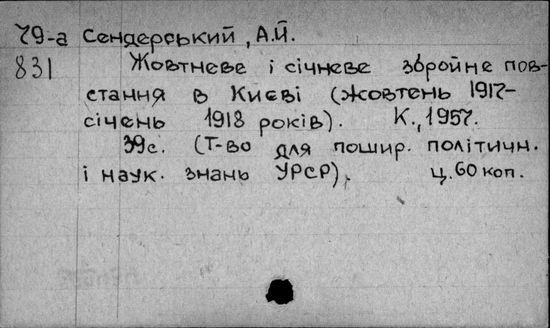 79-а Сендерський, А.Й.
831 Жовтневе і січневе збройне пов-
стання в Києві (жовтень 1917-
січень 1918 років). К., 1957.
39с. (Т-во для пошир. політичн.
і наук. знань УРСР). ц. 60 коп.